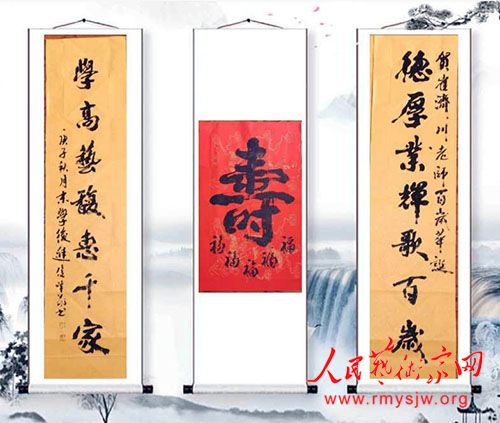 賀崔濟川老师百歲華誕
德厚業輝歌百歲
壽
福福福福福
學高藝馥惠千家
庚子秋月末學後進
人民藝術家网
www.rmysjw.org